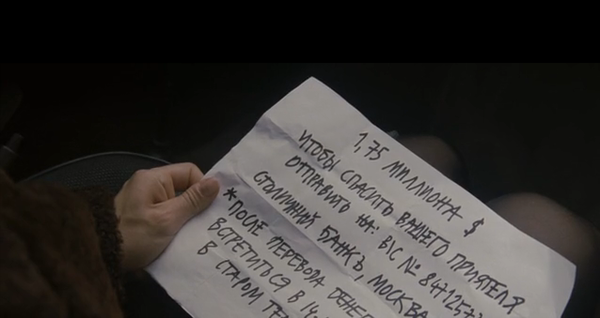 1,75 МИЛЛИОНА $
ЧТОБЫ СПАСИТЬ ВАШЕГО ПРИЯТЕЛЯ
ОТПРАВИТЬ НА: BIC № 8471257
СТОЛИЧНИЙ БАНКЪ, МОСКВА
*ПОСЛЕ ПЕРЕВОДА
ВСТРЕТИТЬСЯ В 14
В СТАРОМ